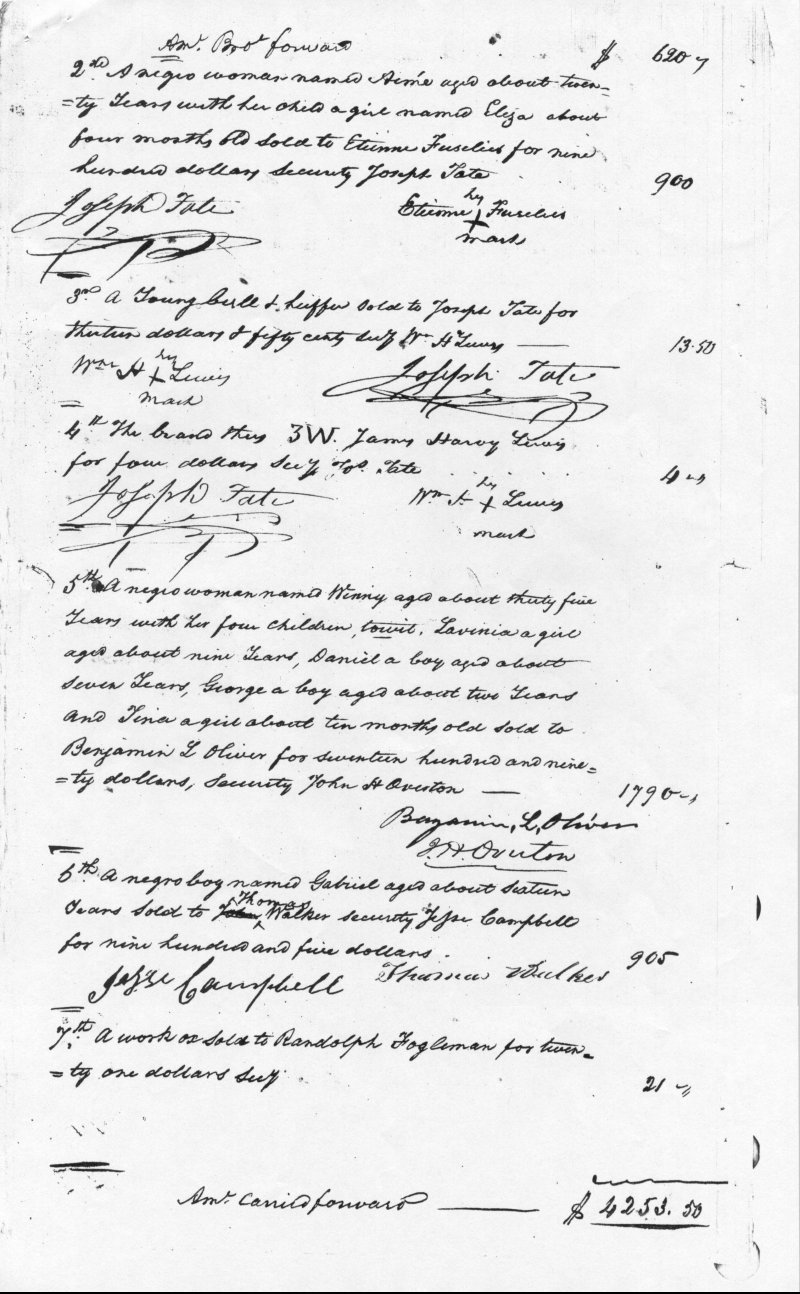 Amt. Brot. forward $ 620
2nd A negro woman named Aimé aged about twen=
=ty Years with her child a girl named Eliza about
four months old sold to Etienne Fuselier for nine
hundred dollars security Joseph Tate 900
Joseph Tate Etienne his X Fuselier
mark
3rd A Young bull & heiffer sold to Joseph Tate for
thirteen dollars & fifty cents Secy Wm H Lewis 13.50
Wm H his X Lewis Joseph Tate
mark
4th The brand thus 3W. James Harvy Lewis
for four dollars Secy Jos. Tate 4
Joseph Tate Wm H his X Lewis
mark
5th A negro woman named Winny aged about thirty five
Years with her four children, towit. Lavinia a girl
aged about nine Years, Daniel a boy aged about
seven Years, George a boy aged about two Years
and Tina a girl about ten months old sold to
Benjamin L Oliver for seventeen hundred and nine=
=ty dollars, security John H Overton 1790
Benjamin, L, Oliver
J. H. Overton
6th A negro boy named Gabriel aged about sixteen
Years sold to Thomas Walker security Jesse Campbell
for nine hundred and five dollars. 905
Jesse Campbell Thomas Walker
7th. A work ox sold to Randolph Fogleman for twen=
=ty one dollars Secy 21
Amt. carried forward $ 4253.50